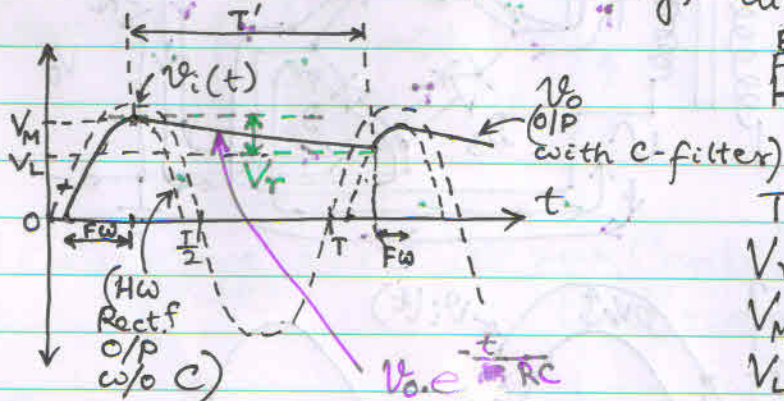 T'
vi(t)
VM
VL
Vr
vo
(O/P
with C-filter)
+
0
FW
T/2
T
FW
t
(HW
Rect.f
O/P
w/o C)
vo.e^-t/RC
T
V
VM
VL